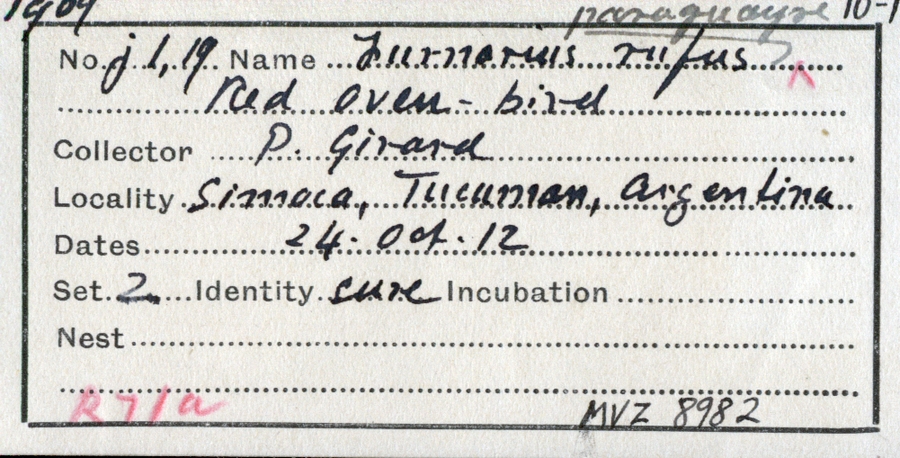 1909 paraguayae 10-1
No. j 1,19. Name Furnarius rufus
Red oven-bird
Collector P. Girard
Locality Simoca, Tucuman, Argentina
Dates 24. Oct. 12
Set 2 Identity sure Incubation
Nest
R71a
MVZ 8982